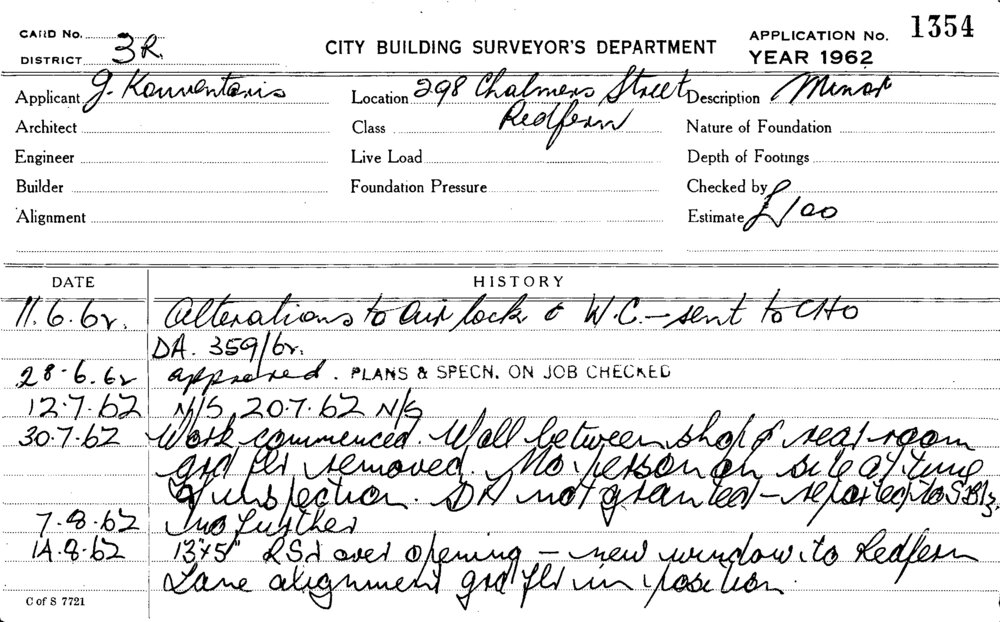 CARD No.
DISTRICT 3R
CITY BUILDING SURVEYOR'S DEPARTMENT
APPLICATION No. 1354
YEAR 1962
Applicant G. Kouventaris Location 298 Chalmers Street Description Minor
Redfern
Architect Class Nature of Foundation
Engineer Live Load Depth of Footings
Builder Foundation Pressure Checked by
Alignment Estimate £100
DATE HISTORY
11.6.62. Alterations to air lock & W.C. – sent to CHO
DA. 359/62.
28.6.62 approved. PLANS & SPECN. ON JOB CHECKED
12.7.62 N/S, 20.7.62 N/S
30.7.62 Work commenced. Wall between shop & rear room
grd flr removed. No person on site at time
of inspection. DA not granted – reported to
7.8.62 no further
14.8.62 13"x5" RSJ over opening – new window to Redfern
Lane alignment grd flr in position.
C of S 7721